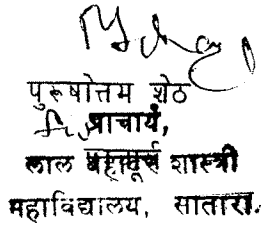 पुरूषोत्तम शेठ
प्राचार्य,
लाल बहादूर शास्त्री
महाविद्यालय, सातारा.